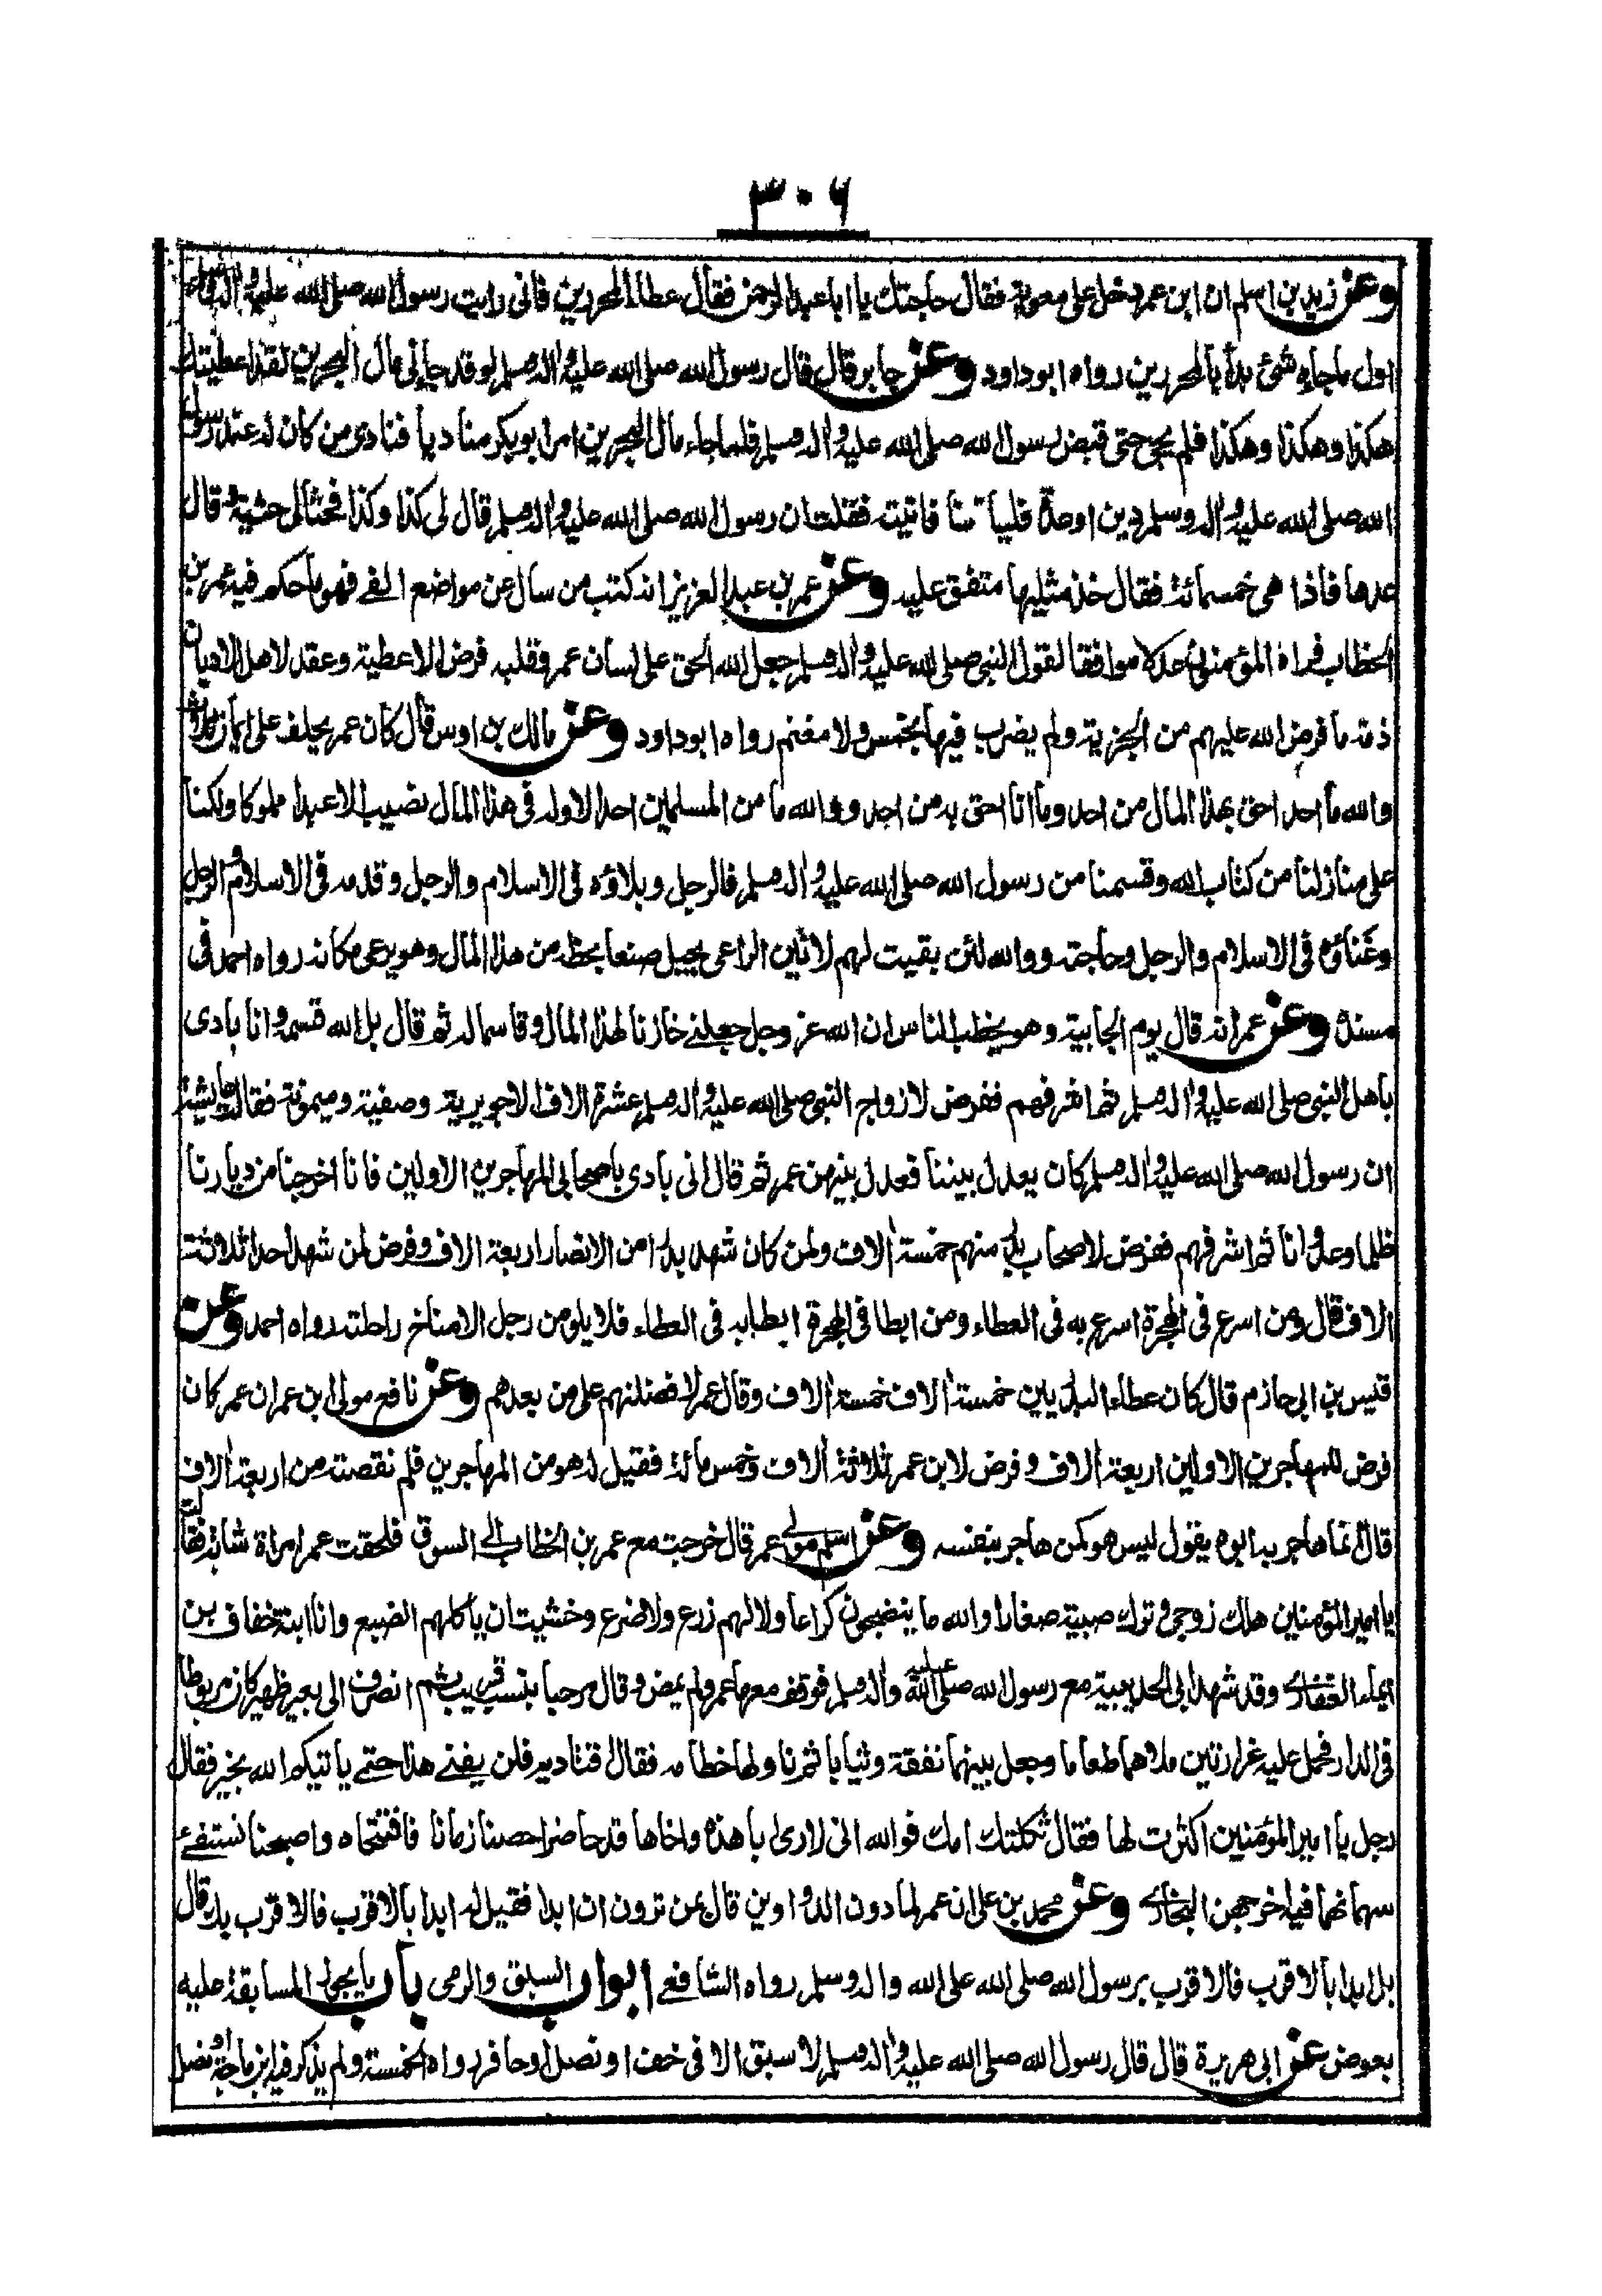 ٣٠٦
وعن زيد بن اسلم ان ابن عمر دخل على معوية فقال حاجتك يا ابا عبد الرحمن فقال عطاء المحررين فانى رايت رسول الله صلى الله عليه واله وسلم
اول ما جاءه شئ بدأ بالمحررين رواه ابو داود وعن جابر قال قال رسول الله صلى الله عليه واله وسلم لو قد جاءنى مال البحرين لقد اعطيتك
هكذا وهكذا وهكذا فلم يجئ حتى قبض رسول الله صلى الله عليه واله وسلم فلما جاء مال البحرين امر ابو بكر مناديا فنادى من كان له عند رسول
الله صلى الله عليه واله وسلم دين او عدة فلياتنا فاتيته فقلت ان رسول الله صلى الله عليه واله وسلم قال لى كذا وكذا فحثا لى حثية وقال
عدها فاذا هى خمسمائة فقال خذ مثليها متفق عليه وعن عمر بن عبد العزيز انه كتب من سال عن مواضع الفئ فهو ما حكم فيه عمر بن
الخطاب فراه المؤمنون عدلا موافقا لقول النبى صلى الله عليه واله وسلم جعل الله الحق على لسان عمر وقلبه فرض الاعطية وعقد لاهل الاديان
ذمة ما فرض الله عليهم من الجزية ولم يضرب فيها بخمس ولا مغنم رواه ابو داود وعن مالك بن اوس قال كان عمر يحلف على ايمان ثلاث
والله ما احد احق بهذا المال من احد وما انا احق به من احد ووالله ما من المسلمين احد الا وله فى هذا المال نصيب الا عبدا مملوكا ولكنا
على منازلنا من كتاب الله وقسمنا من رسول الله صلى الله عليه واله وسلم فالرجل وبلاؤه فى الاسلام والرجل وقدمه فى الاسلام والرجل
وغناؤه فى الاسلام والرجل وحاجته ووالله لئن بقيت لهم لاتين الراعى بجبل صنعا بحظه من هذا المال وهو يرعى مكانه رواه احمد فى
مسنده وعن عمر انه قال يوم الجابية وهو يخطب الناس ان الله عز وجل جعلنى خازنا لهذا المال وقاسما له ثم قال بل الله قسمه وانا بادى
باهل النبى صلى الله عليه واله وسلم ثم اشرفهم ففرض لازواج النبى صلى الله عليه واله وسلم عشرة الاف الا جويرية وصفية وميمونة فقالت عايشة
ان رسول الله صلى الله عليه واله وسلم كان يعدل بيننا فعدل بينهن عمر ثم قال انى بادى باصحابى المهاجرين الاولين فانا اخرجنا من ديارنا
ظلما وعدوانا ثم اشرفهم ففرض لاصحاب بدر منهم خمسة الاف ولمن كان شهد بدرا من الانصار اربعة الاف وفرض لمن شهد احدا ثلاثة
الاف قال ومن اسرع فى الهجرة اسرع به فى العطاء ومن ابطا فى الهجرة ابطا به فى العطاء فلا يلومن رجل الا مناخ راحلته رواه احمد وعن
قيس بن ابى حازم قال كان عطاء البدريين خمسة الاف خمسة الاف وقال عمر لافضلنهم على من بعدهم وعن نافع مولى ابن عمر ان عمر كان
فرض للمهاجرين الاولين اربعة الاف وفرض لابن عمر ثلاثة الاف وخمس مائة فقيل له هو من المهاجرين فلم نقصته من اربعة الاف
قال انما هاجر به ابوه يقول ليس هو كمن هاجر بنفسه وعن اسلم مولى عمر قال خرجت مع عمر بن الخطاب الى السوق فلحقت عمر امراة شابة فقالت
يا امير المؤمنين هلك زوجى وترك صبية صغارا والله ما ينضجون كراعا ولا لهم زرع ولا ضرع وخشيت ان ياكلهم الضبع وانا ابنة خفاف بن
ايماء الغفارى وقد شهد ابى الحديبية مع رسول الله صلى الله عليه واله وسلم فوقف معها عمر ولم يمض وقال مرحبا بنسب قريب ثم انصرف الى بعير ظهير كان مربوطا
فى الدار فحمل عليه غرارتين ملاهما طعاما وجعل بينهما نفقة وثيابا ثم ناولها خطامه فقال اقتاديه فلن يفنى هذا حتى ياتيكم الله بخير فقال
رجل يا امير المؤمنين اكثرت لها فقال ثكلتك امك فوالله انى لارى ابا هذه واخاها قد حاصرا حصنا زمانا فافتتحاه واصبحنا نستفئ
سهمانهما فيه اخرجهن البخارى وعن محمد بن على ان عمر لما دون الدواوين قال بمن ترون ان ابدا فقيل له ابدا بالاقرب فالاقرب بك قال
بل ابدا بالاقرب فالاقرب برسول الله صلى الله على الله واله وسلم رواه الشافعى ابواب السبق والرمى باب ما يجوز المسابقة عليه
بعوض عن ابى هريرة قال قال رسول الله صلى الله عليه واله وسلم لا سبق الا فى خف او نصل او حافر رواه الخمسة ولم يذكر فيه ابن ماجة او نصل